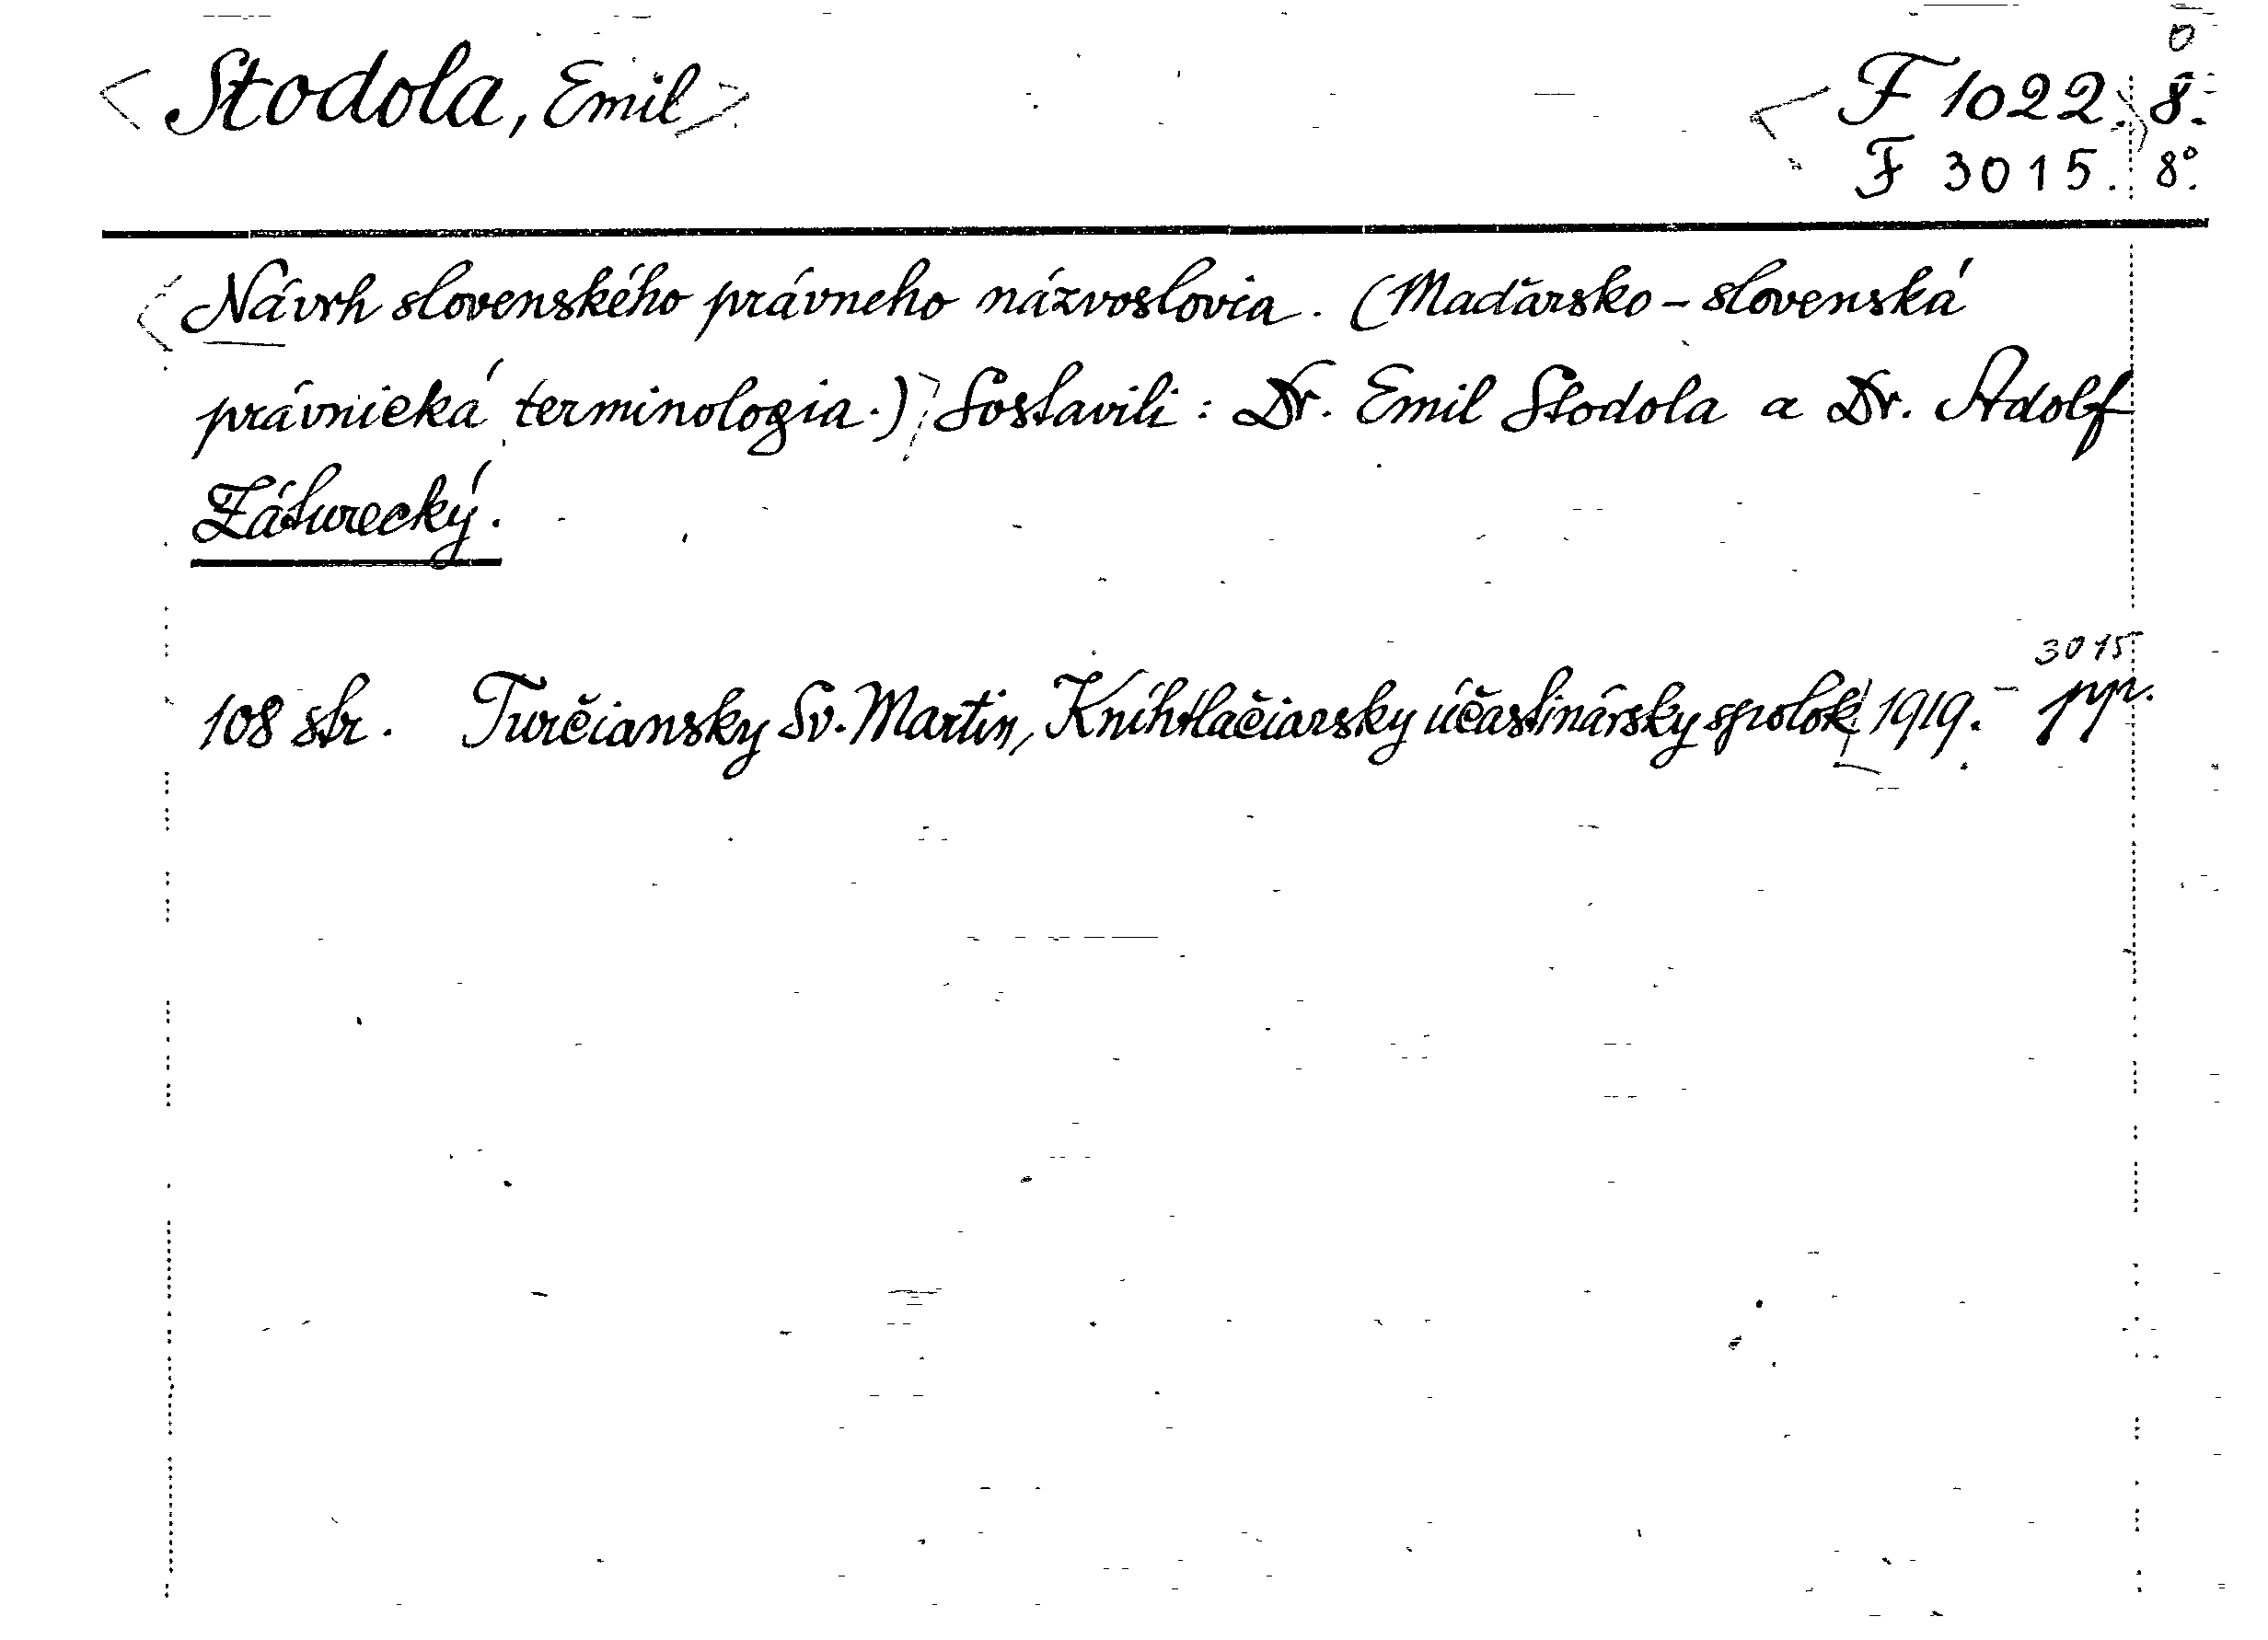 <Stodola, Emil> <F 1022.> 8°.
F 3015. 8°.
<Návrh slovenského právneho názvoslovia. (Maďarsko-slovenská
právnická terminologia.)> Sostavili: Dr. Emil Stodola a Dr. Adolf
Záturecký.
3015
108 str. Turčiansky Sv. Martin, Knihtlačiarsky účastinársky spolok, 1919. –